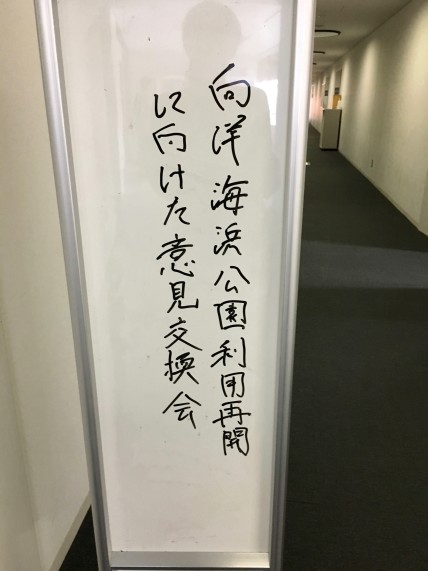 向洋海浜公園利用再開
に向けた意見交換会